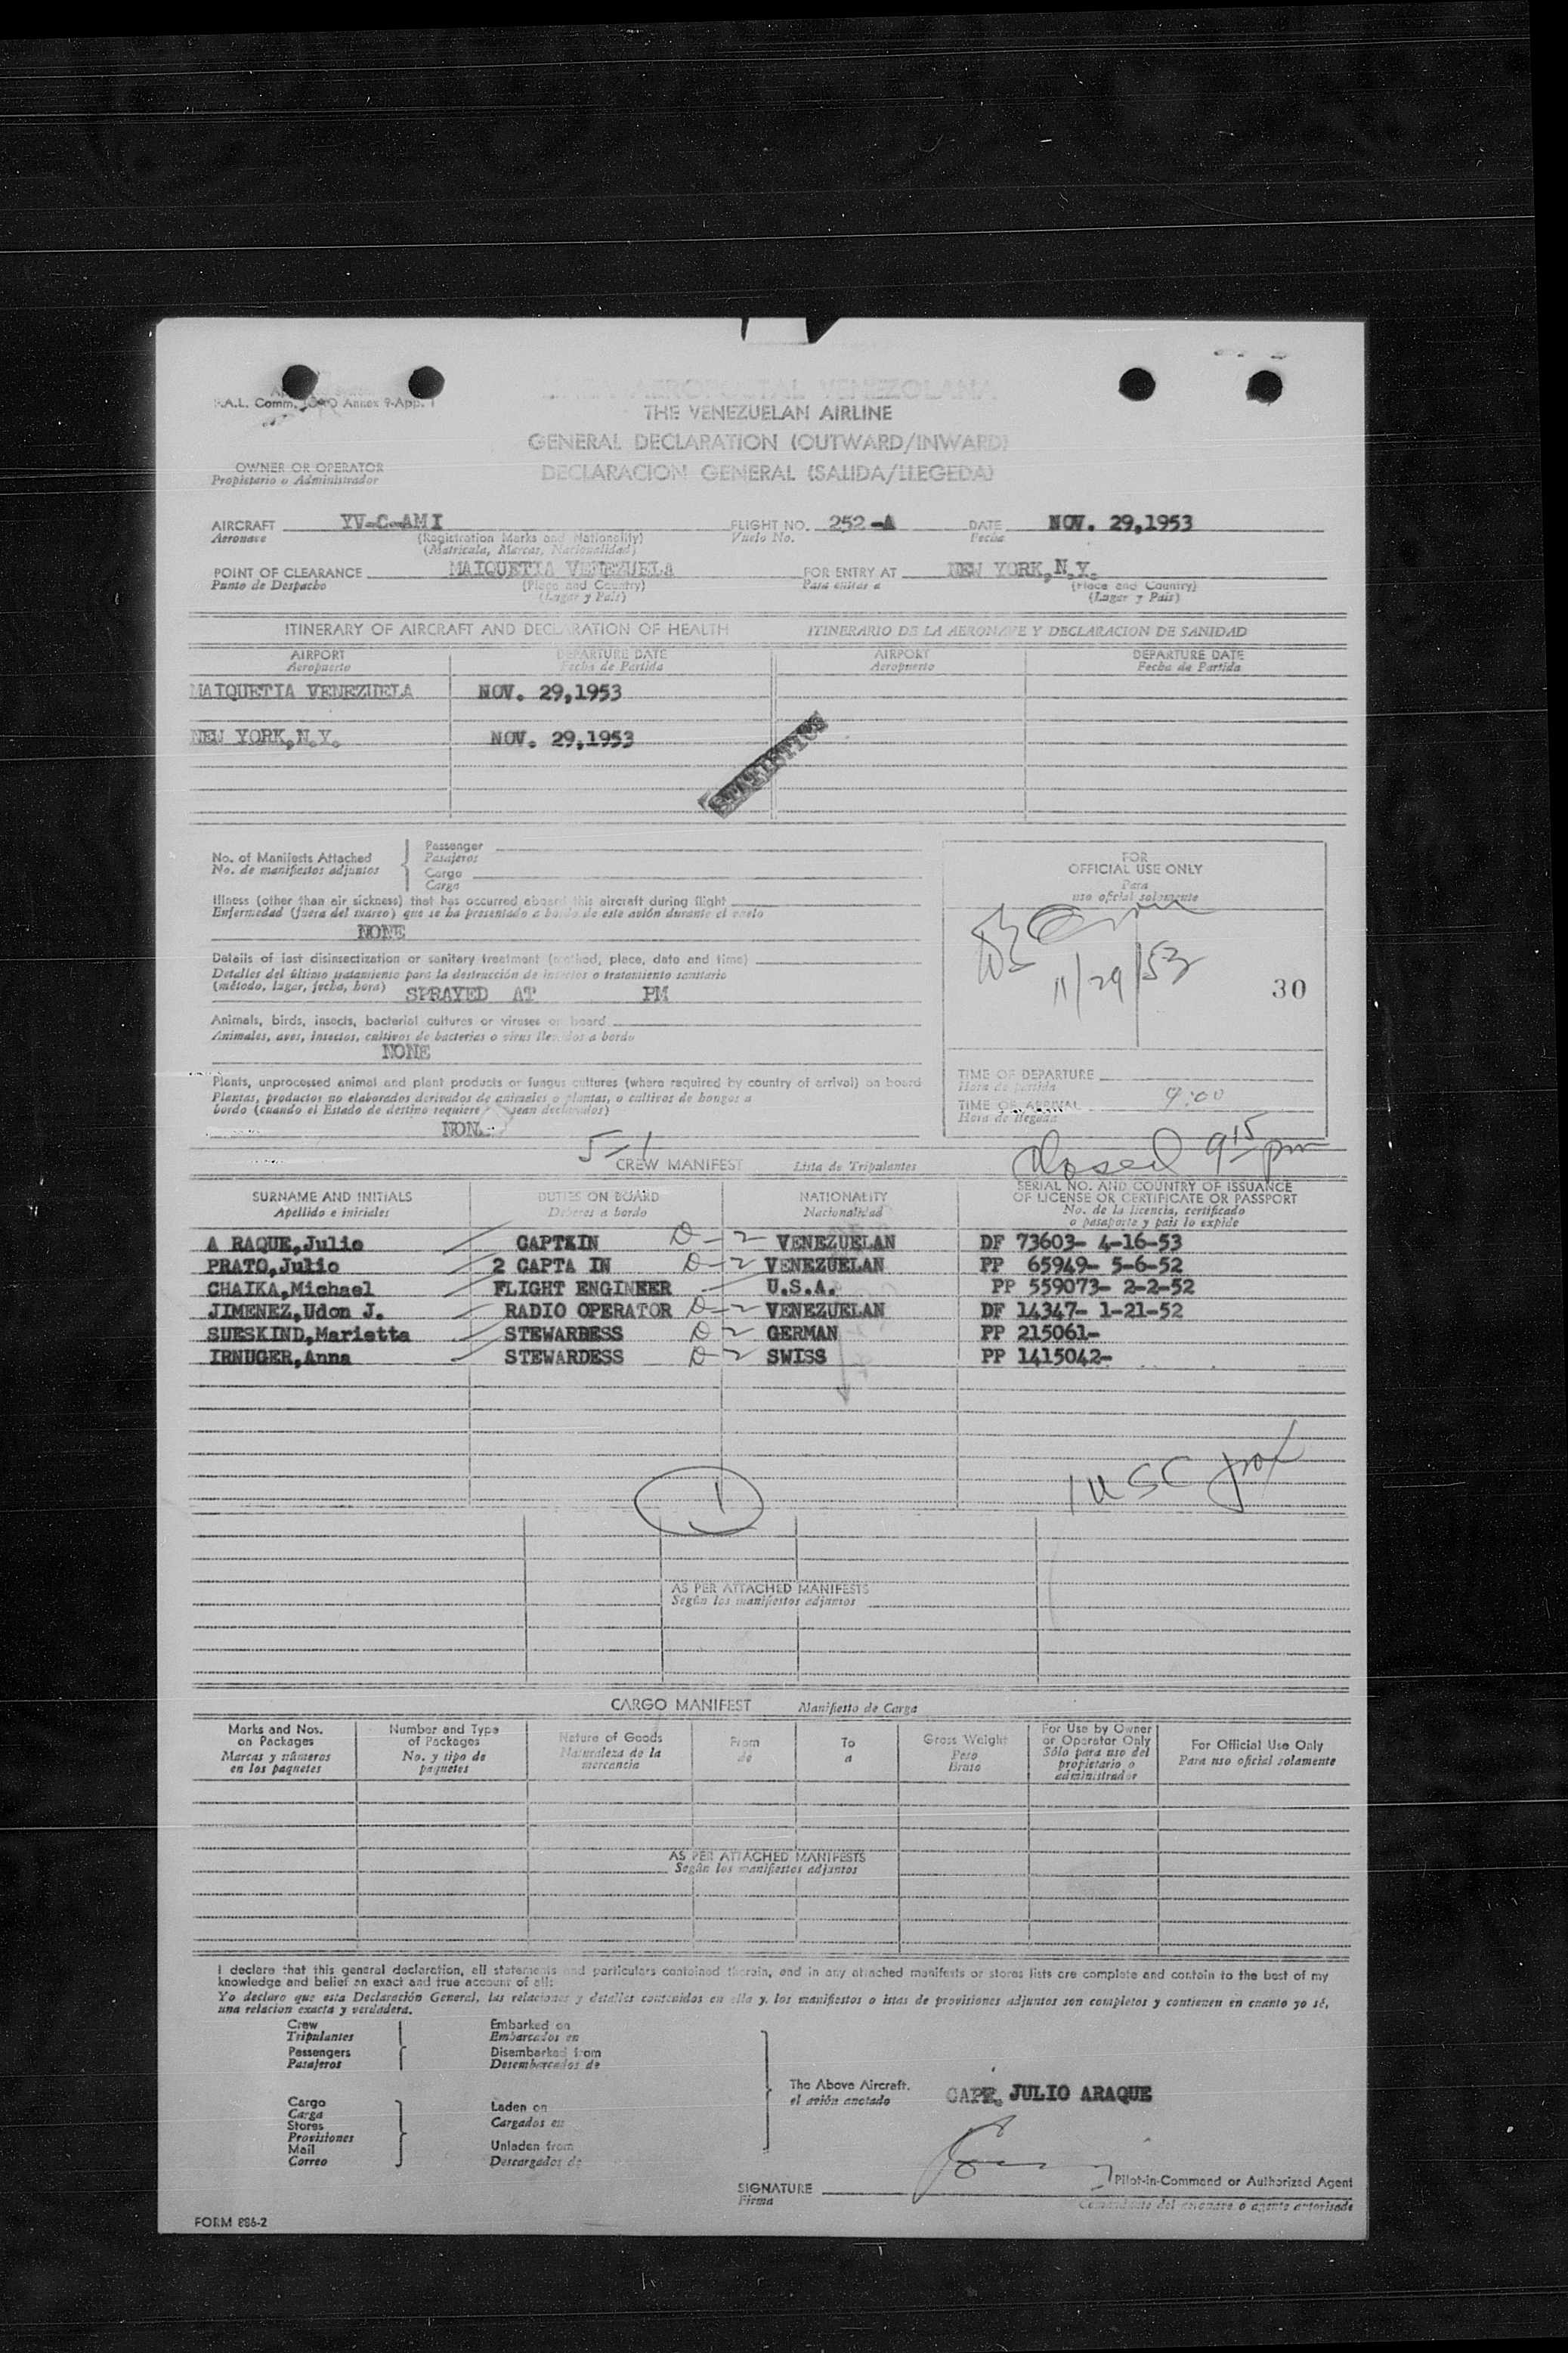 F.A.L. Comm. ICAO Annex 9-App. 1
LINEA AEROPOSTAL VENEZOLANA
THE VENEZUELAN AIRLINE
GENERAL DECLARATION (OUTWARD/INWARD)
DECLARACION GENERAL (SALIDA/LLEGEDA)
OWNER OR OPERATOR
Propietario o Administrador
AIRCRAFT YV-C-AMI FLIGHT NO. 252-A DATE NOV. 29,1953
Aeronave (Registration Marks and Nationality) Vuelo No. Fecha
(Matricula, Marcas, Nacionalidad)
POINT OF CLEARANCE MAIQUETIA VENEZUELA FOR ENTRY AT NEW YORK,N.Y.
Punto de Despacho (Place and Country) Para entrar a (Place and Country)
(Lugar y País) (Lugar y País)
ITINERARY OF AIRCRAFT AND DECLARATION OF HEALTH ITINERARIO DE LA AERONAVE Y DECLARACION DE SANIDAD
AIRPORT DEPARTURE DATE AIRPORT DEPARTURE DATE
Aeropuerto Fecha de Partida Aeropuerto Fecha de Partida
MAIQUETIA VENEZUELA NOV. 29,1953
NEW YORK,N.Y. NOV. 29,1953
STATISTICS
No. of Manifests Attached Passenger
No. de manifiestos adjuntos Pasajeros
Cargo
Carga
Illness (other than air sickness) that has occurred aboard this aircraft during flight
Enfermedad (fuera del mareo) que se ha presentado a bordo de este avión durante el vuelo
NONE
Details of last disinsectization or sanitary treatment (method, place, date and time)
Detalles del último tratamiento para la destrucción de insectos o tratamiento sanitario
(método, lugar, fecha, hora) SPRAYED AT PM
Animals, birds, insects, bacterial cultures or viruses on board
Animales, aves, insectos, cultivos de bacterias o virus llevados a bordo
NONE
Plants, unprocessed animal and plant products or fungus cultures (where required by country of arrival) on board
Plantas, productos no elaborados derivados de animales o plantas, o cultivos de hongos a
bordo (cuando el Estado de destino requiere sean declarados)
NON
FOR
OFFICIAL USE ONLY
Para
uso oficial solamente
11/29/53
30
TIME OF DEPARTURE
Hora de partida
TIME OF ARRIVAL 9:00
Hora de llegada
closed 9 15 pm
5-1
CREW MANIFEST Lista de Tripulantes
SURNAME AND INITIALS DUTIES ON BOARD NATIONALITY SERIAL NO. AND COUNTRY OF ISSUANCE
OF LICENSE OR CERTIFICATE OR PASSPORT
Apellido e iniciales Deberes a bordo Nacionalidad No. de la licencia, certificado
o pasaporte y país lo expide
A RAQUE,Julio CAPTAIN D-2 VENEZUELAN DF 73603- 4-16-53
PRATO,Julio 2 CAPTA IN D-2 VENEZUELAN PP 65949- 5-6-52
CHAIKA,Michael FLIGHT ENGINEER U.S.A. PP 559073- 2-2-52
JIMENEZ,Udon J. RADIO OPERATOR D-2 VENEZUELAN DF 14347- 1-21-52
SUESKIND,Marietta STEWARDESS D-2 GERMAN PP 215061-
IRNUGER,Anna STEWARDESS D-2 SWISS PP 1415042-
1 USC
1
AS PER ATTACHED MANIFESTS
Según los manifiestos adjuntos
CARGO MANIFEST Manifiesto de Carga
Marks and Nos. on Packages Number and Type of Packages Nature of Goods From To Gross Weight For Use by Owner or Operator Only For Official Use Only
Marcas y números en los paquetes No. y tipo de paquetes Naturaleza de la mercancía de a Peso Bruto Sólo para uso del propietario o administrador Para uso oficial solamente
AS PER ATTACHED MANIFESTS
Según los manifiestos adjuntos
I declare that this general declaration, all statements and particulars contained therein, and in any attached manifests or stores lists are complete and contain to the best of my
knowledge and belief an exact and true account of all:
Yo declaro que esta Declaración General, las relaciones y detalles contenidos en ella y. los manifiestos o istas de provisiones adjuntos son completos y contienen en cuanto yo sé,
una relacion exacta y verdadera.
Crew Embarked on
Tripulantes Embarcados en
Passengers Disembarked from
Pasajeros Desembarcados de
The Above Aircraft. CAPT. JULIO ARAQUE
el avión anotado
Cargo Laden on
Carga Cargados en
Stores
Provisiones
Mail Unladen from
Correo Descargados de
SIGNATURE Pilot-in-Command or Authorized Agent
Firma Comandante del aeronave o agente autorisado
FORM 886-2